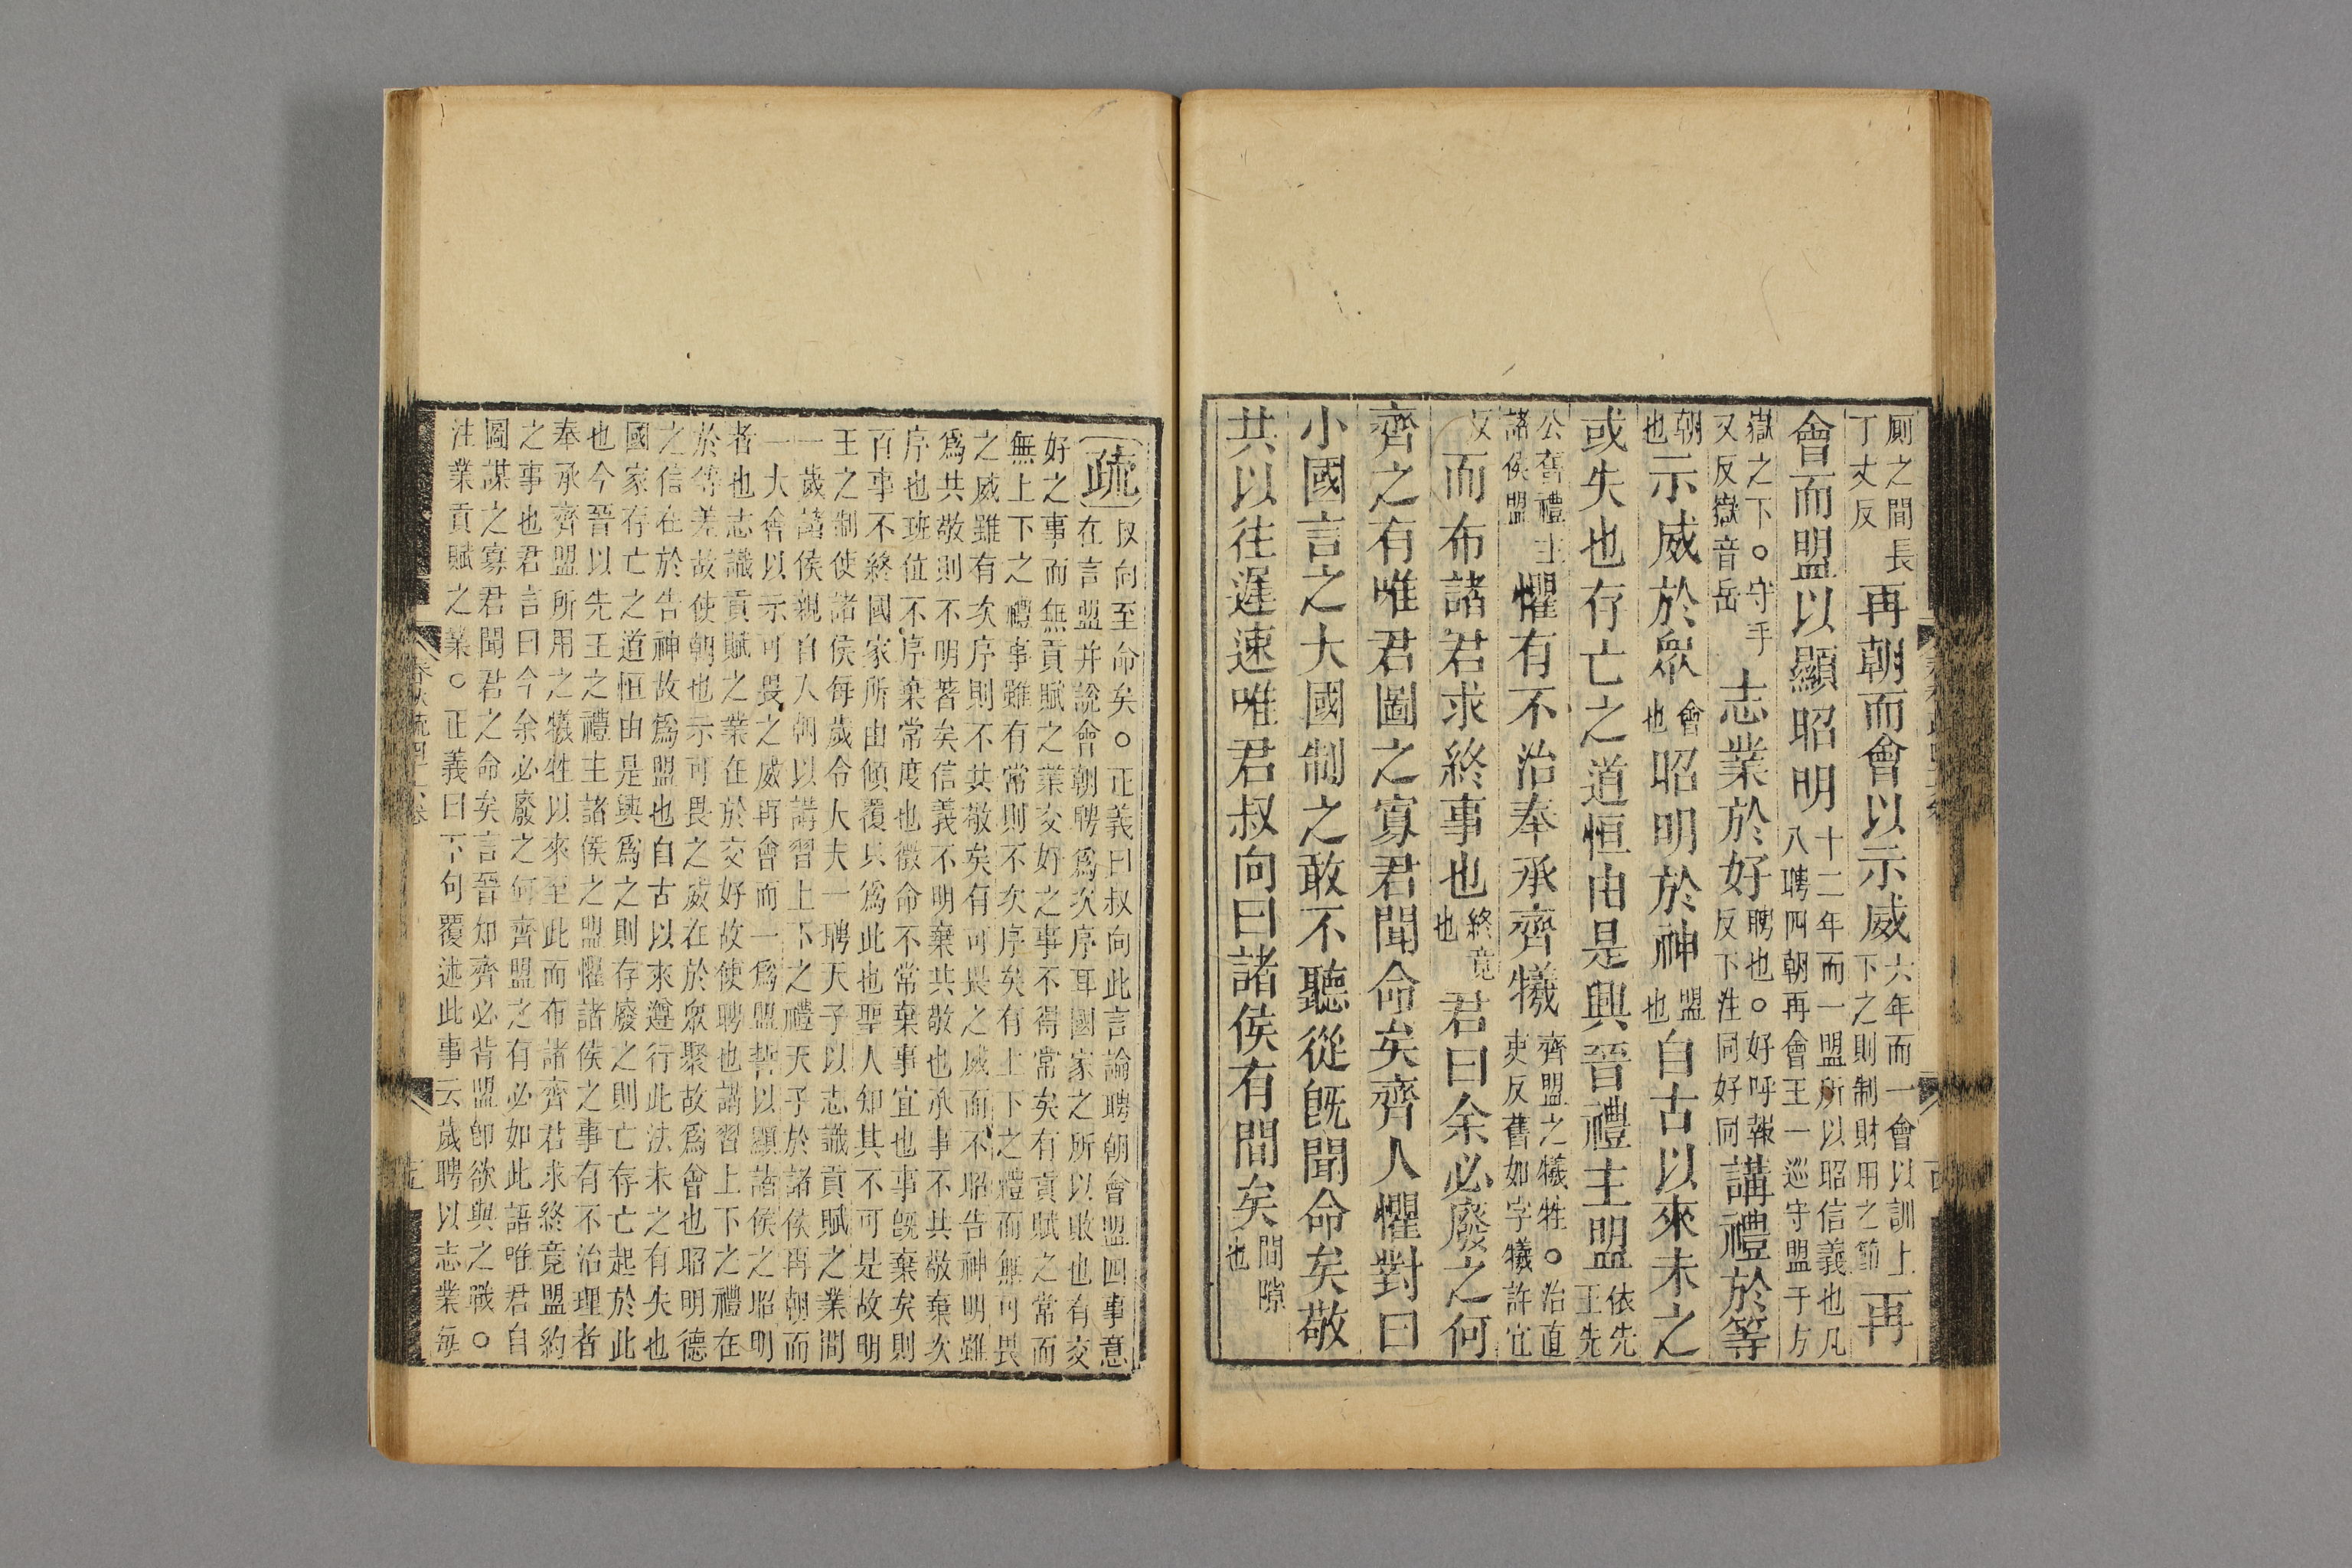 厠之間長
丁丈反
再朝而會以示威
六年而一會以訓上
下之則制財用之節
再
會而盟以顯昭明
十二年而一盟所以昭信義也凡
八聘四朝再會王一巡守盟于方
嶽之下○守手
又反嶽音岳
志業於好
聘也○好呼報
反下注同好同
講禮於等
朝
也
示威於眾
會
也
昭明於神
盟
也
自古以來未之
或失也存亡之道恒由是興晉禮主盟
依先
王先
公舊禮主
諸侯盟
懼有不治奉承齊犧
齊盟之犧牲○治直
吏反舊如字犧許宜
反
而布諸君求終事也
終竟
也
君曰余必廢之何
齊之有唯君圖之寡君聞命矣齊人懼對曰
小國言之大國制之敢不聽從旣聞命矣敬
共以往遲速唯君叔向曰諸侯有間矣
間隙
也
疏
叔向至命矣○正義曰叔向此言論聘朝會盟四事意
在言盟并說會朝聘爲次序耳國家之所以敗也有交
好之事而無貢賦之業交好之事不得常矣有貢賦之常而
無上下之禮事雖有常則不次序矣有上下之禮而無可畏
之威雖有次序則不共敬矣有可畏之威而不昭告神明雖
爲共敬則不明著矣信義不明棄共敬也承事不共敬棄次
序也班位不序棄常度也徵命不常棄事宜也事旣棄矣則
百事不終國家所由傾覆只爲此也聖人知其不可是故明
王之制使諸侯每歲令大夫一聘天子以志識貢賦之業間
一歲諸侯親自入朝以講習上下之禮天子於諸侯再朝而
一大會以示可畏之威再會而一爲盟誓以顯諸侯之昭明
者也志識貢賦之業在於交好故使聘也講習上下之禮在
於等差故使朝也示可畏之威在於眾聚故爲會也昭明德
之信在於告神故爲盟也自古以來遵行此法未之有失也
國家存亡之道恒由是興爲之則存廢之則亡存亡起於此
也今晉以先王之禮主諸侯之盟懼諸侯之事有不治理者
奉承齊盟所用之犧牲以來至此而布諸齊君求終竟盟約
之事也君言曰今余必廢之何齊盟之有必如此語唯君自
圖謀之寡君聞君之命矣言晉知齊必背盟卽欲與之職○
注業貢賦之業○正義曰下句覆述此事云歲聘以志業每